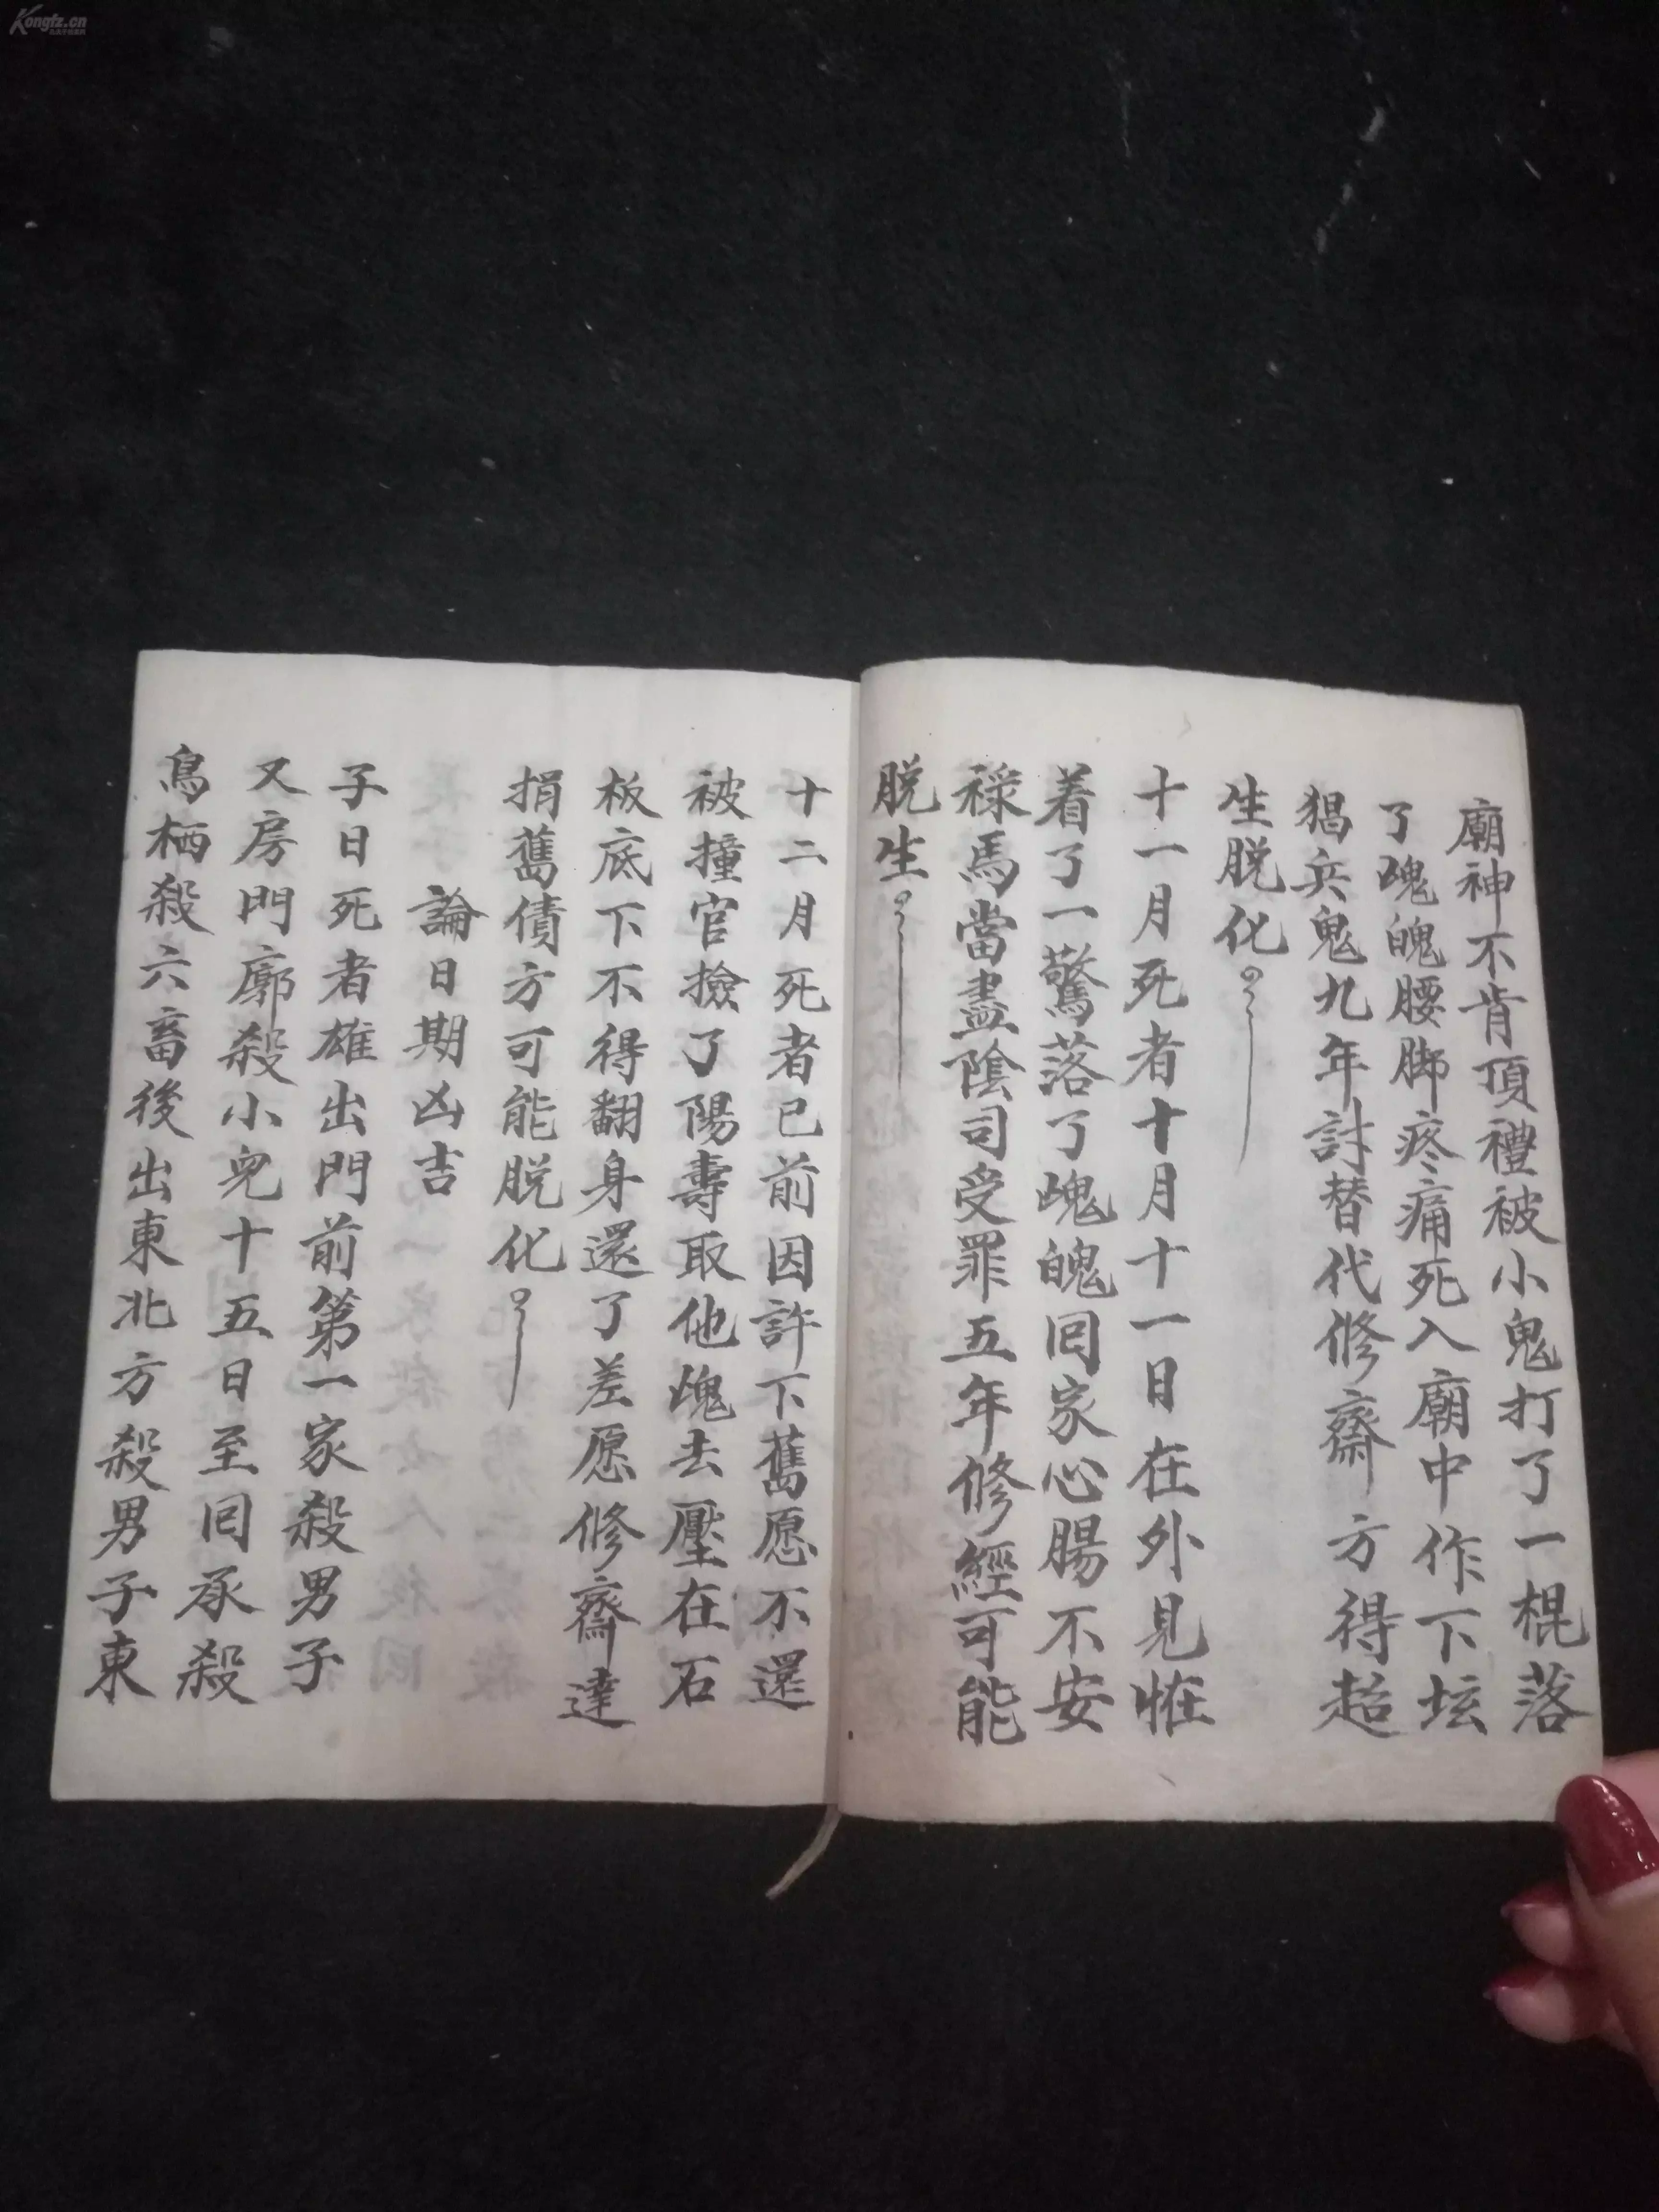 廟神不肯頂禮被小鬼打了一棍落
了魂魄腰脚疼痛死入廟中作下坛
猖兵鬼九年討替代修齋方得超
生脱化
十一月死者十月十一日在外見恠
着了一驚落了魂魄囘家心腸不安
祿馬當盡陰司受罪五年修經可能
脱生
十二月死者已前因許下舊愿不還
被撞官撿了陽壽取他魂去壓在石
板底下不得翻身還了差愿修齋達
捐舊債方可能脱化
論日期凶吉
子日死者雄出門前第一家殺男子
又房門廓殺小兒十五日至囘承殺
鳥栖殺六畜後出東北方殺男子東
Kongfz.cn